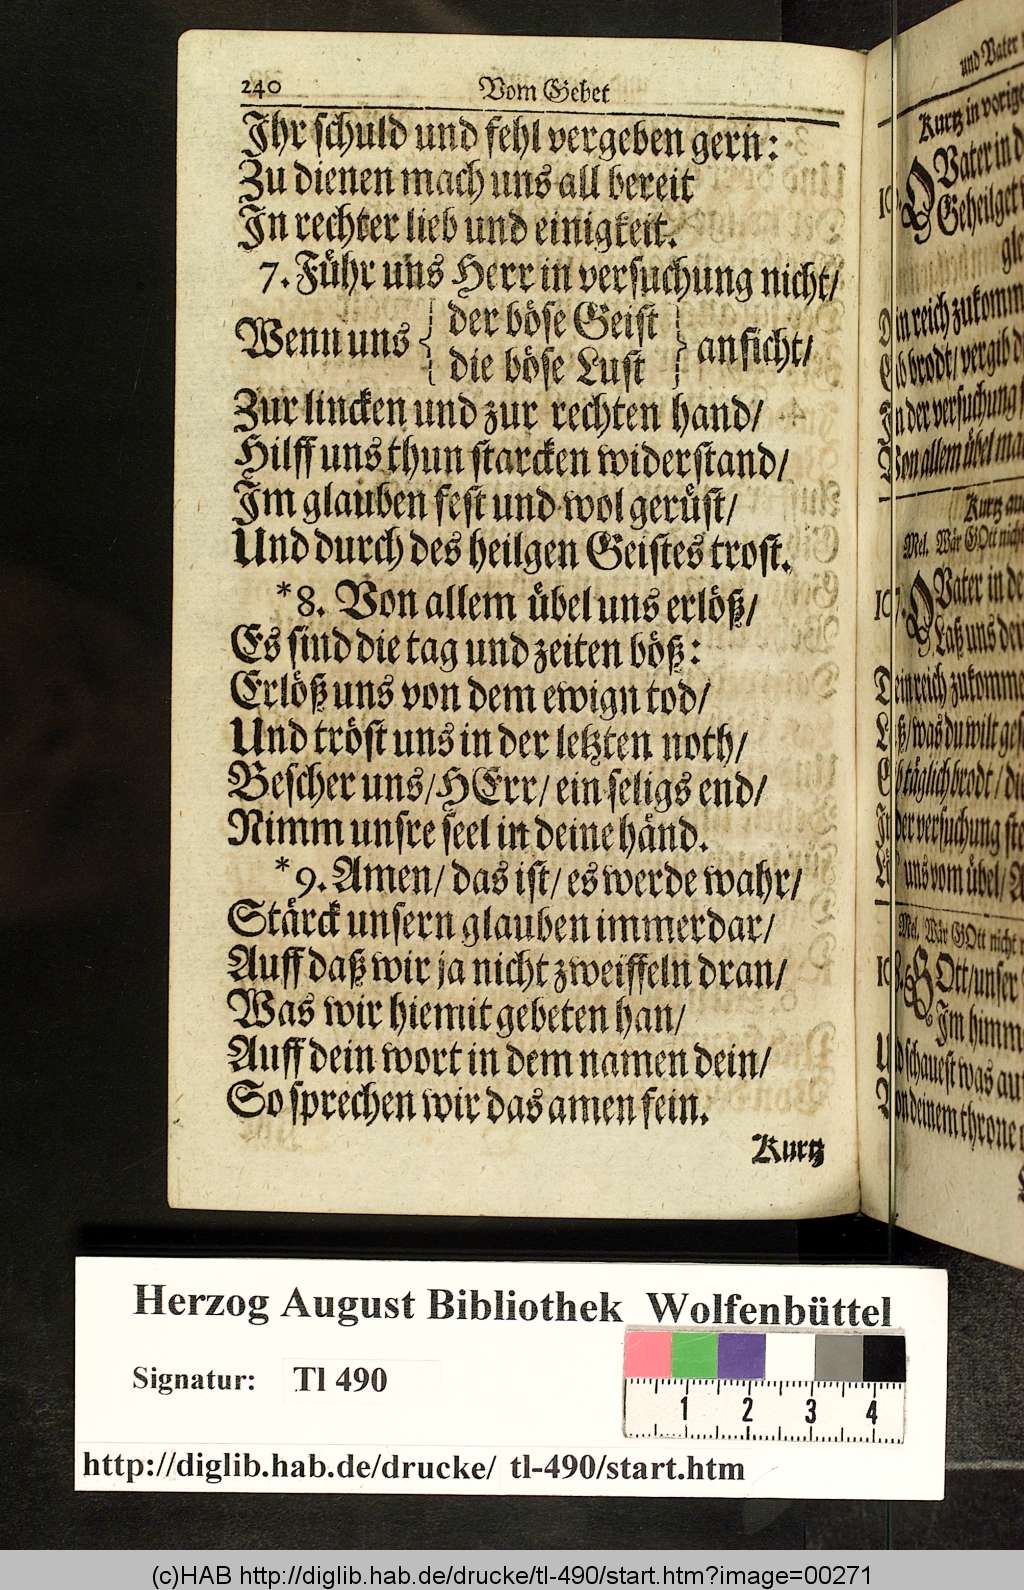 240 Vom Gebet
Ihr schuld und fehl vergeben gern:
Zu dienen mach uns all bereit
In rechter lieb und einigkeit.
7. Führ uns Herr in versuchung nicht/
Wenn uns { der böse Geist
die böse Lust } anficht/
Zur lincken und zur rechten hand/
Hilff uns thun starcken widerstand/
Im glauben fest und wol gerüst/
Und durch des heilgen Geistes trost.
*8. Von allem übel uns erlöß/
Es sind die tag und zeiten böß:
Erlöß uns von dem ewign tod/
Und tröst uns in der letzten noth/
Bescher uns/ HErr/ ein seligs end/
Nimm unsre seel in deine händ.
*9. Amen/ das ist/ es werde wahr/
Stärck unsern glauben immerdar/
Auff daß wir ja nicht zweiffeln dran/
Was wir hiemit gebeten han/
Auff dein wort in dem namen dein/
So sprechen wir das amen fein.
Kurtz
und Vater
Kurtz in vorige
O Vater in d
Geheilget
gle
Dein reich zukomm
Gib brodt/ vergib d
In der versuchung
Von allem übel ma
Kurtz au
Mel. Wär GOtt nicht
O Vater in de
Laß uns dei
Dein reich zukomme
Laß/ was du wilt ges
Gib täglich brodt/ die
In der versuchung ste
uns vom übel/ A
Mel. Wär GOtt nicht
GOtt/ unser
Im himm
Und schauest was auf
Von deinem throne
Herzog August Bibliothek Wolfenbüttel
Signatur: Tl 490
1 2 3 4
http://diglib.hab.de/drucke/ tl-490/start.htm
(c)HAB http://diglib.hab.de/drucke/tl-490/start.htm?image=00271